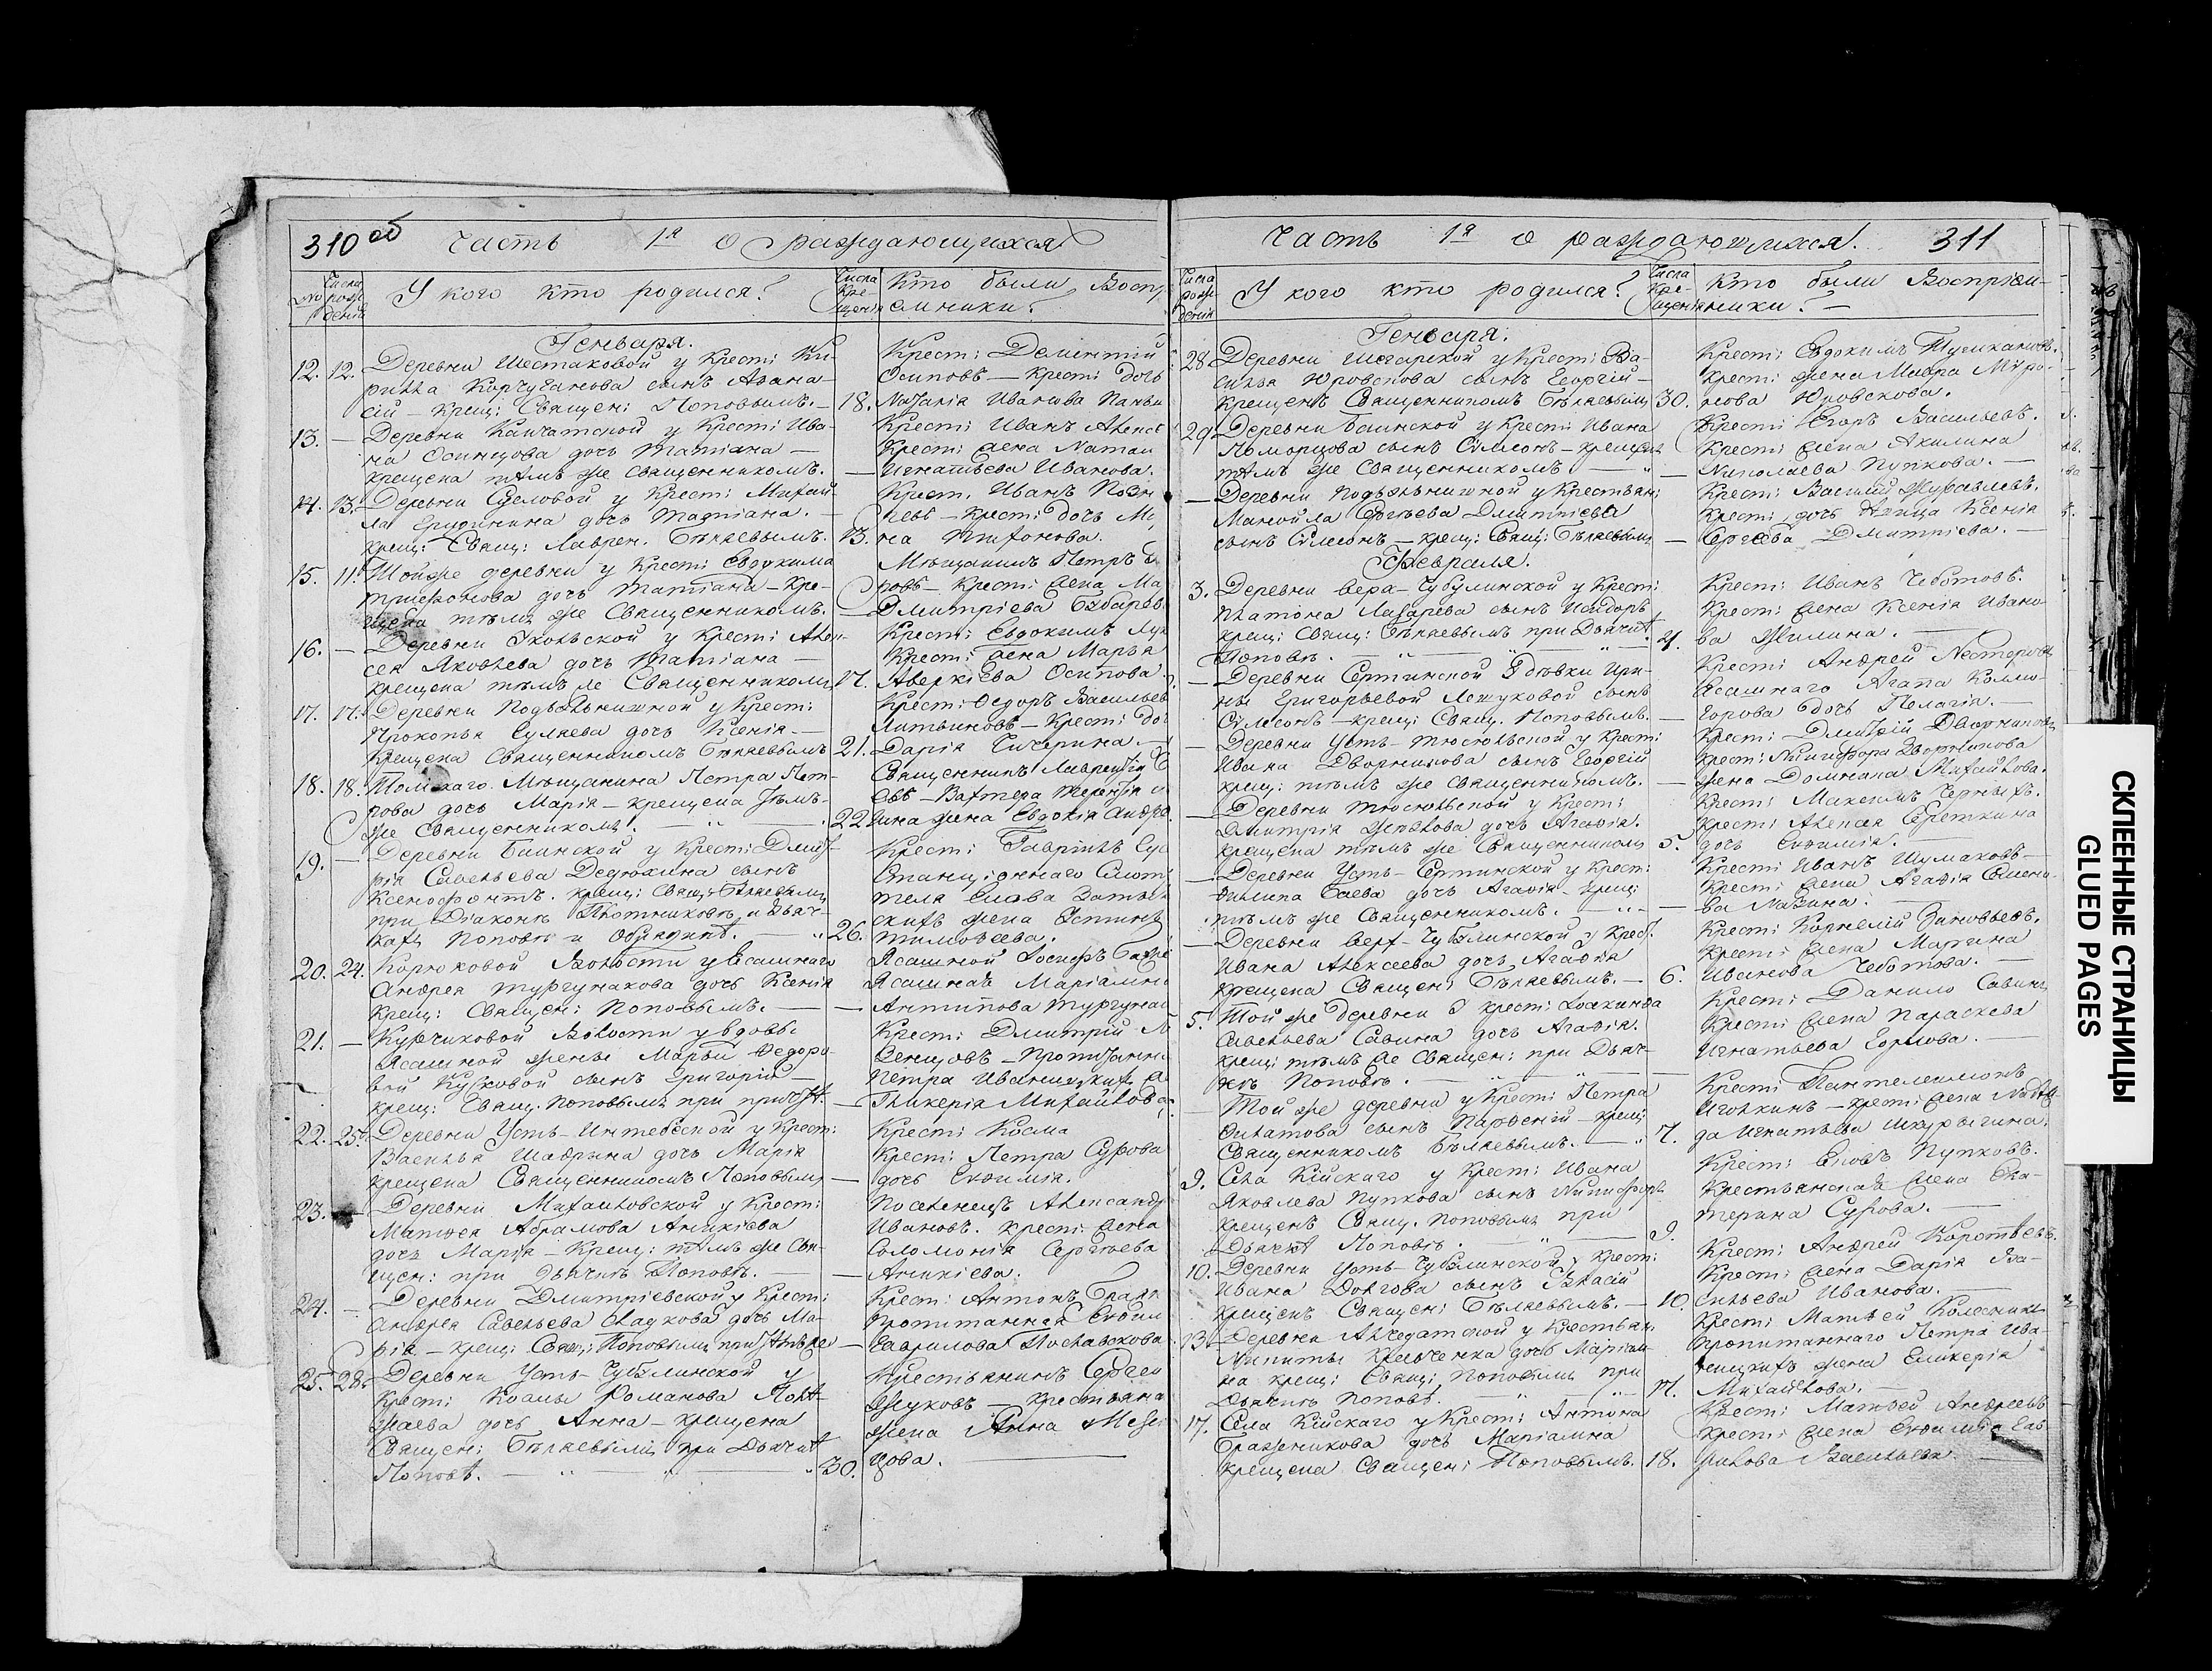 310 об Часть 1я О раждающихся
№ Числа рожденiя
У кого кто родился?
Числа крещенiя
Кто были Воспр
емники?
Генваря.
12. 12. Деревни Шестаковой у Крест: Ки-
рилла Корчуганова сынъ Афана-
сiй – крещ: Священ: Поповымъ. –
18.
Крест: Дементiй
Осиповъ – крест: дочь
Ивanова
13. – Деревни Камчатской у Крест: Ива-
на Осинцова дочь Татiана –
крещена тѣмъ же Священникомъ. –
Крест: Иванъ Алекс
Крест: жена Натал
Игнатьева Иванова.
14. 13. Деревни Сусловой у Крест: Михай-
ла дочь Татiана. –
крещ: Свящ: Лаврен. Бѣляевымъ.
13.
Крест. Иванъ
– Крест: дочь
на Тифонова.
15. 11. Той же деревни у Крест: Евдокима
Трифонова дочь Татiана – кре-
щена тѣмъ же Священникомъ. –
Мѣщанинъ Петръ
ровъ – Крест: жена Ма
Дмитрiева
16. – Деревни у Крест: Алек-
сея Яковлева дочь Татiана –
крещена тѣмъ же Священникомъ
17.
Крест: Евдокимъ
Крест: жена Марья
Аверкiева Осипова
17. 17. Деревни Подъельнишной у Крест:
Прокопья Суляева дочь Ксенiя. –
крещена Священникомъ Бѣляевымъ
21.
Крест: Федоръ Васильев
Литвиновъ – Крест: до
Дарiя Чичерина. –
18. 18. Томскаго Мѣщанина Петра Пет-
рова дочь Марiя – крещена тѣмъ
же Священникомъ.
22.
Священникъ Лаврентiй
Вахтера Терентiя
жена Евдокiя Андре
19. – Деревни Баинской у Крест: Дмит-
рiя Савельева Дедюхина сынъ
Ксенофонтъ. крещ: Свящ: Бѣляевымъ
при Дiаконѣ Плотниковѣ и Дьяч-
кахъ Поповѣ и
26.
Крест: Гаврiилъ Сус
Станцiоннаго Смот
теля
жена Устинья
Тимофеева.
20. 24. Корюковой Волости у Ясашнаго
Андрея Тургунакова дочь Ксенiя
крещ: Священ: Поповымъ. –
Ясашной Iосифъ
Ясашная Марiамна
Антипова Тургунак
21. – Курчиковой Волости у вдовы
Ясашной жены Марьи Федоро-
вой сынъ Григорiй –
крещ: Свящ. Поповымъ при причтѣ. –
Крест: Дмитрiй
– Пропитанна
Петра
Гликерiя Михайлова
22. 25. Деревни Усть-Интебеской у Крест:
Василья Шадрина дочь Марiя
крещена Священникомъ Поповымъ –
Крест: Косма
Крест: Петра Сурова
дочь Евфимiя.
23. – Деревни Михайловской у Крест:
Матфея Абрамова Аникiева
дочь Марiя – Крещ: тѣмъ же Свя-
щен: при Дьячкѣ Поповѣ. –
Поселенецъ Александр
Ивановъ. крест: жена
Соломонiя Сергѣева
Аникiева.
24. – Деревни Дмитрiевской у Крест:
Андрея Савельева дочь Ма-
рiя – крещ: Свящ: Поповымъ при –
Крест: Антонъ
Пропитанная
Гаврилова
25. 28. Деревни Усть-Чубулинской у
Крест: Космы Романова
дочь Анна – крещена
Священ: Бѣляевымъ при Дьячкѣ
Поповѣ.
30.
Крестьянинъ Сергей
Жуковъ – крестьяна
жена Анна
цова.
Часть 1я О раждающихся. 311
Числа рожденiя
У кого кто родился?
Числа крещенiя
Кто были Воспрiем-
ники? –
Генваря.
28. Деревни у Крест: Ва-
силья Юровскова сынъ Георгiй –
крещенъ Священникомъ Бѣляевымъ
30.
Крест: Евдокимъ
Крест: жена Мавра Миро-
нова Юровскова.
29. Деревни Баинской у Крест: Ивана
Поморцова сынъ Симеонъ – крещенъ
тѣмъ же Священникомъ
Крест: Егоръ Васильевъ.
Крест: жена Акилина
Николаева Пупкова. –
– Деревни Подъельнишной у Крестьян:
Манойла Сергѣева Дмитрiева
сынъ Симеонъ – крещ: Свящ: Бѣляевымъ
Крест: Василiй Журавлевъ.
Крест: дочь дѣвица Ксенiя
Сергѣева Дмитрiева. –
Февраля.
3. Деревни Верх-Чубулинской у Крест:
Платона Лазарева сынъ Исидоръ
крещ: Свящ: Бѣляевымъ при Дьячкѣ
Поповѣ.
4.
Крест: Иванъ Чеботовъ.
Крест: жена Ксенiя Ивано-
ва Жилина. –
– Деревни Сертинской у дѣвки Ири-
ны Григорьевой сынъ
Симеонъ – крещ: Свящ. Поповымъ. –
Крест: Андрей Нестеровъ
Ясашнаго Агапа
дочь Пелагiя. –
– Деревни Усть-Тюсюльской у Крест:
Ивана Дворникова сынъ Георгiй
крещ: тѣмъ же Священникомъ. –
Крест: Дмитрiй Дворниковъ
Крест: Никифора Дворникова
жена Домнина Михайлова.
– Деревни Тюсюльской у Крест:
Дмитрiя дочь Агафiя.
крещена тѣмъ же Священникомъ
5.
Крест: Максимъ Черныхъ.
Крест: Алексея
дочь Евфимiя. –
– Деревни Усть-Сертинской у Крест:
Филипа Саева дочь Агафiя – крещ:
тѣмъ же Священникомъ. –
Крест: Иванъ Шумаковъ –
Крест: жена Агафiя Семено-
ва
– Деревни Верх-Чубулинской у Крес.
Ивана Алексеева дочь Агафiя
крещена Священ: Бѣляевымъ. –
6.
Крест: Корнелiй Зиновьевъ.
Крест: жена Марина
Иванова Чеботова. –
5. Той же деревни у крест: Iоакима
Савельева Савина дочь Агафiя.
крещ: тѣмъ же Священ: при Дьяч-
кѣ Поповѣ. –
Крест: Данило Савинъ
Крест: жена Параскева
Игнатьева Горлова. –
– Той же деревни у Крест: Петра
Филатова сынъ Парфенiй – крещ:
Священникомъ Бѣляевымъ. –
7.
Крест: Пантелеимонъ
Иголкинъ – крест: жена Надеж-
да Игнатьева Шкурыгина.
9. Села Кiйскаго у Крест: Ивана
Яковлева Пупкова сынъ Никифоръ
крещенъ Свящ. Поповымъ при
Дьячкѣ Поповѣ.
9.
Крест: Яковъ Пупковъ.
Крестьянская жена Ека-
терина Сурова. –
10. Деревни Усть-Чубулинской у Крест:
Ивана Долгова сынъ Власiй
крещенъ Священ: Бѣляевымъ. –
10.
Крест: Андрей Коротаевъ.
Крест: жена Дарiя Ва-
сильева Иванова. –
13. Деревни Алчедатской у Крестьян
Никиты Кравченка дочь Марiам-
на крещ: Свящ: Поповымъ при
Дьячкѣ Поповѣ.
17.
Крест: Матвей Колесник
Пропитаннаго Петра Ива-
ницкихъ жена Гликерiя
Михайлова. –
17. Села Кiйскаго у Крест: Антона
Бражникова дочь Марiамна
крещена Священ: Поповымъ.
18.
Крест: Матвей Андреевъ
Крест: жена Евфимiя Гав-
рилова Васильева. –
СКЛЕЕННЫЕ СТРАНИЦЫ
GLUED PAGES